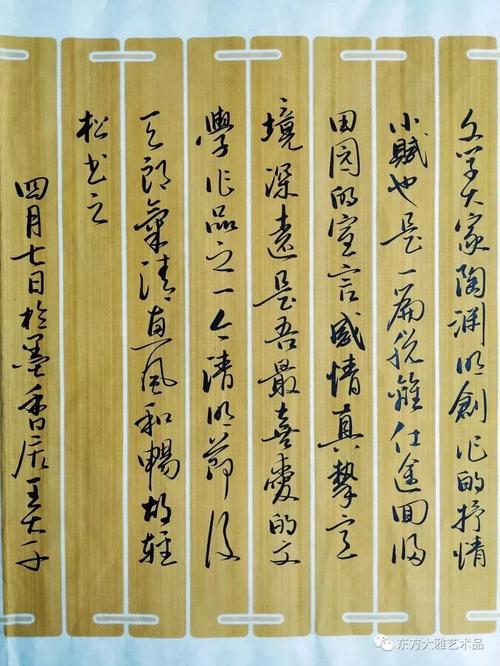 文学大家陶渊明創作的抒情
小賦也是一篇脱離仕途回归
田园的宣言感情真摯意
境深遠是吾最喜愛的文
學作品之一今清明節后
天朗氣清惠风和暢故輕
松书之
四月七日於墨香居王
东方大雅艺术品